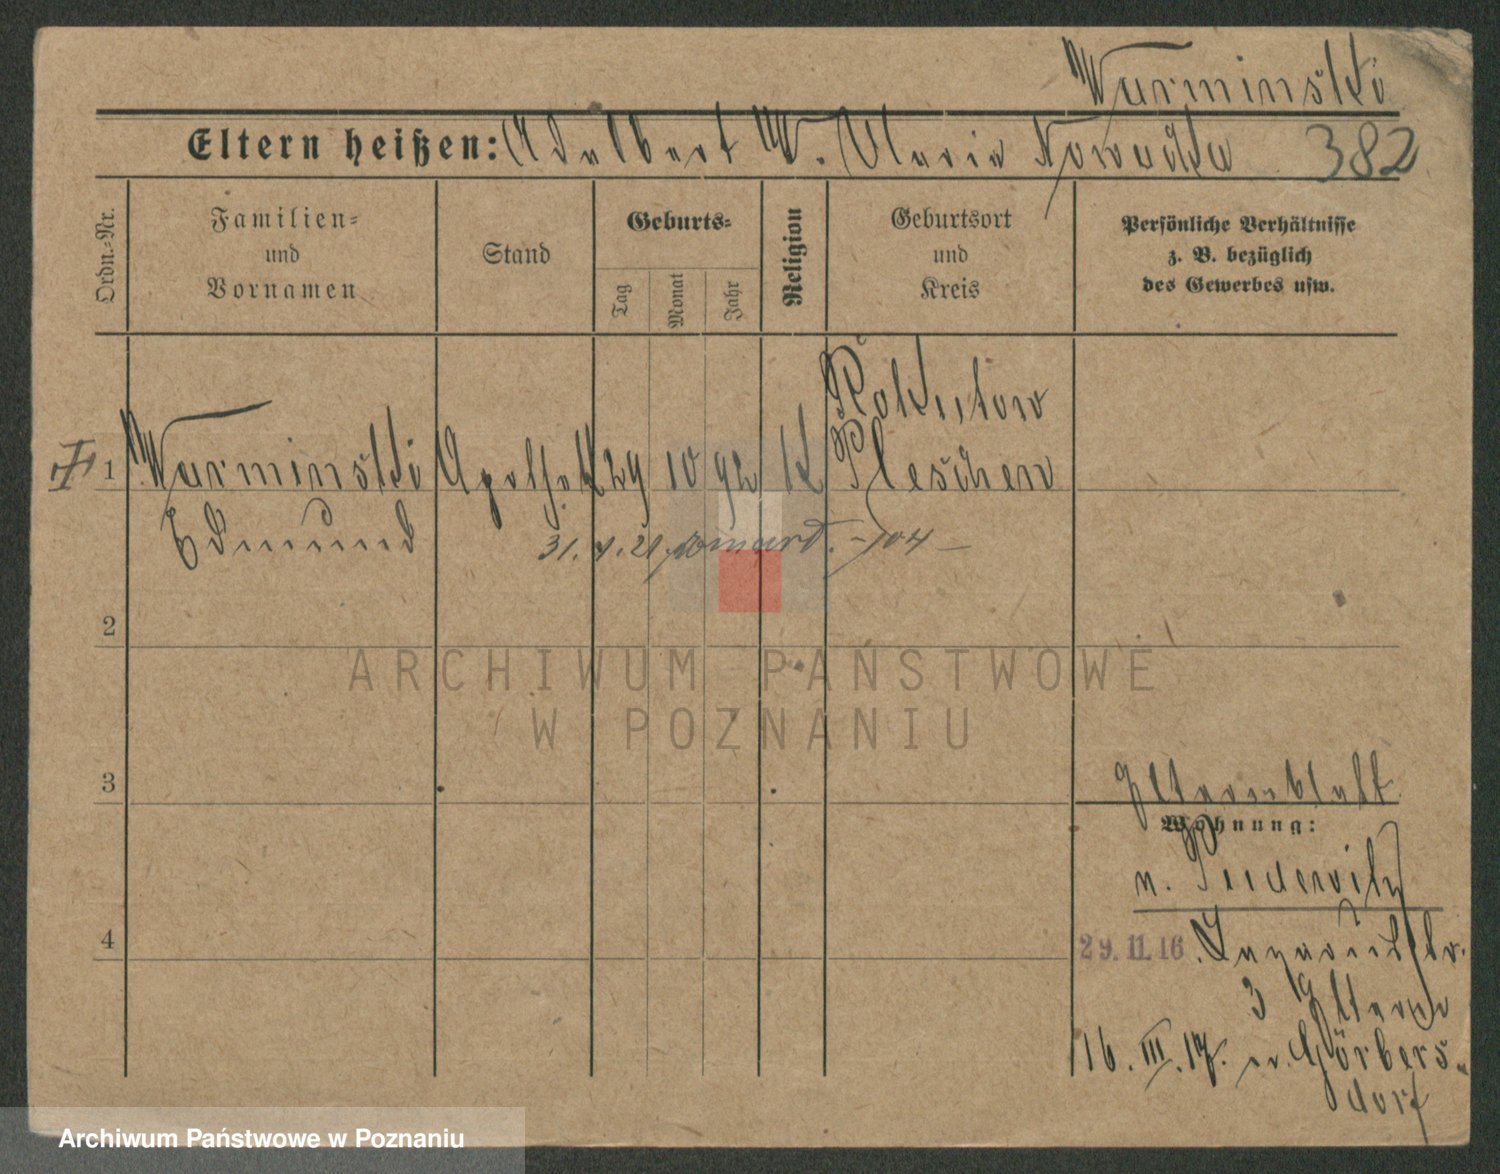 Warminski
Eltern heißen: Adalbert W. Maria Nowacka 382
Ordn.-Nr.
Familien-
und
Vornamen
Stand
Geburts-
Tag
Monat
Jahr
Religion
Geburtsort
und
Kreis
Persönliche Verhältnisse
z. B. bezüglich
des Gewerbes usw.
Rokutow
1 Warminski 29 10 92 K Pleschen
Edmund
31. 1. 21 -104-
2
ARCHIWUM PAŃSTWOWE
W POZNANIU
3
Elternblatt
Wohnung:
n. Pudewitz
4
29.11.16
3 Eltern
16. III. 17. n. Görbers-
dorf
Archiwum Państwowe w Poznaniu